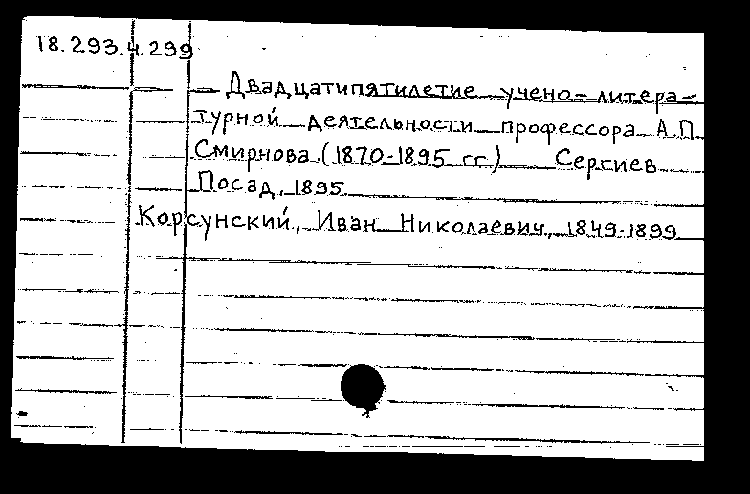 18.293.4.299
— Двадцатипятилетие учено-литера-
турной деятельности профессора А.П.
Смирнова (1870-1895 гг.) Сергиев
Посад, 1895
Корсунский, Иван Николаевич, 1849-1899